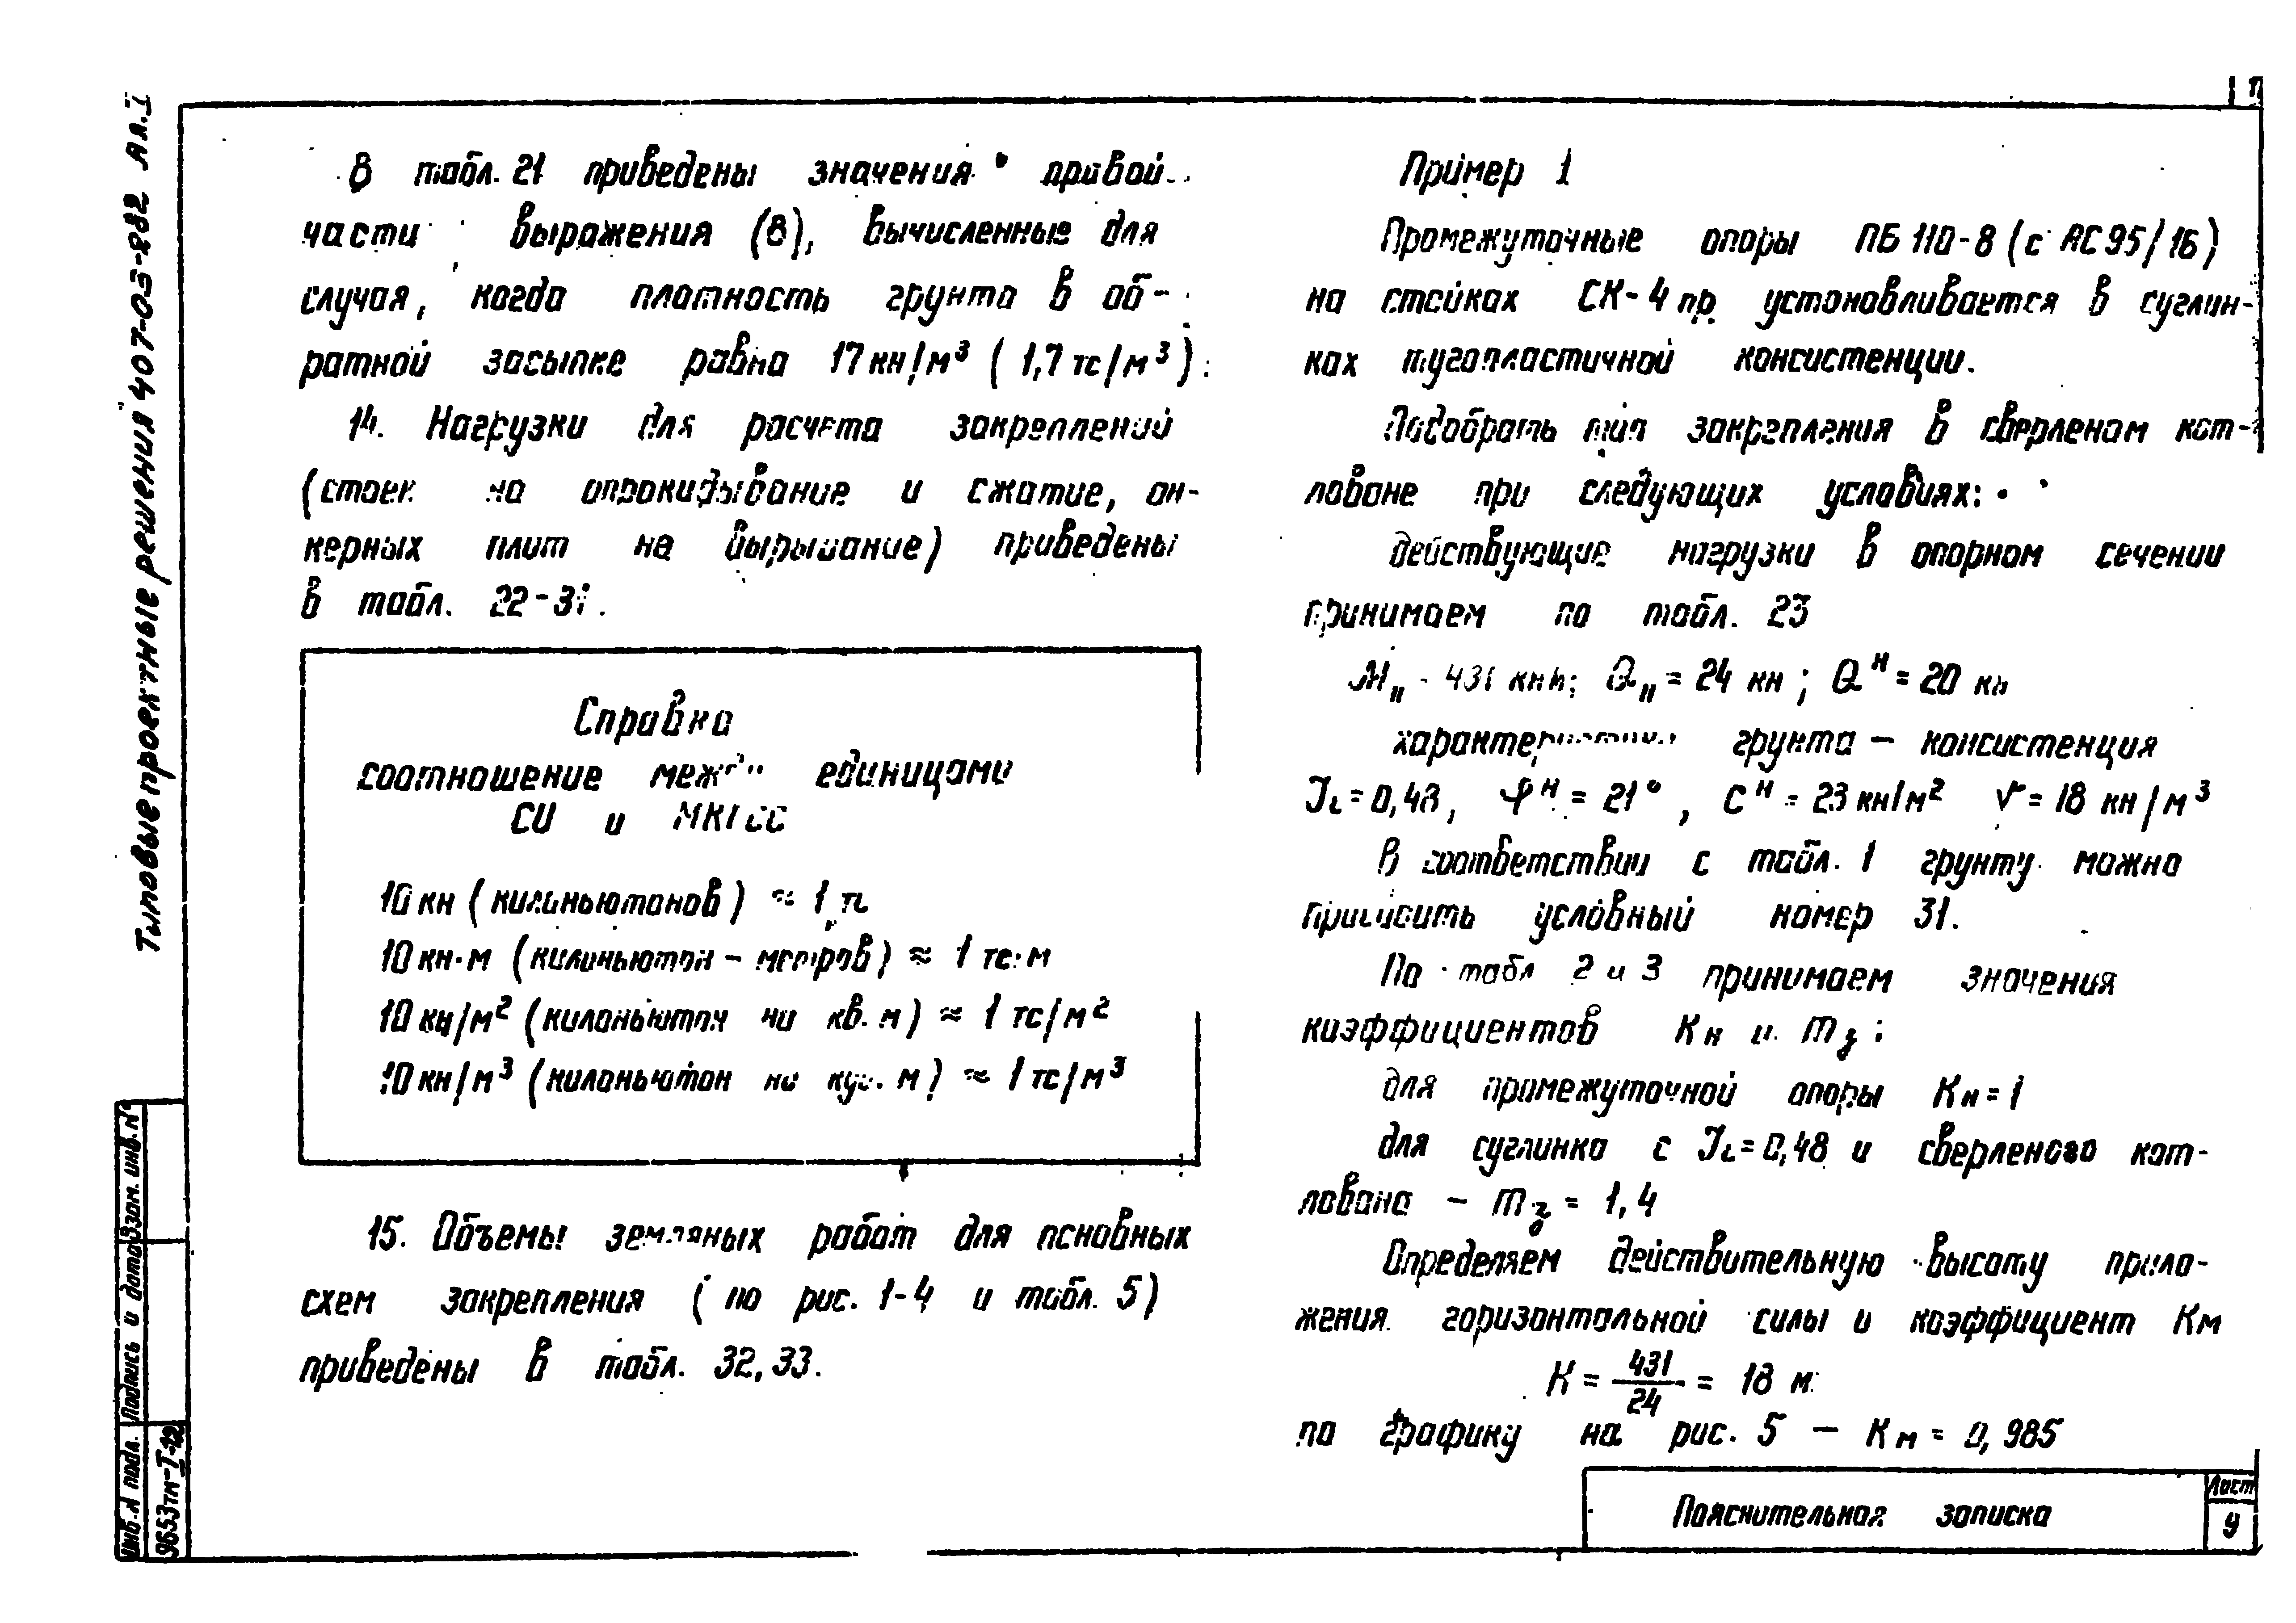 Типовые проектные решения 407-03-282 Ал. I
В табл. 21 приведены значения правой
части выражения (8), вычисленные для
случая, когда плотность грунта в об-
ратной засыпке равна 17 кн/м³ (1,7 тс/м³).
14. Нагрузки для расчета закреплений
(стоек на опрокидывание и сжатие, ан-
керных плит на вырывание) приведены
в табл. 22-31.
Справка
соотношение между единицами
СИ и МКГСС
10 кн (килоньютонов) ≈ 1 тс
10 кн·м (килоньютон - метров) ≈ 1 тс·м
10 кн/м² (килоньютон на кв. м) ≈ 1 тс/м²
10 кн/м³ (килоньютон на куб. м) ≈ 1 тс/м³
15. Объемы земляных работ для основных
схем закрепления (по рис. 1-4 и табл. 5)
приведены в табл. 32, 33.
Пример 1
Промежуточные опоры ПБ 110-8 (с АС 95/16)
на стойках СК-4 пр. установливается в суглин-
ках тугопластичной консистенции.
Подобрать тип закрепления в сверленом кот-
ловане при следующих условиях:
действующие нагрузки в опорном сечении
принимаем по табл. 23
M_II - 431 кнм; Q_II = 24 кн; Q^н = 20 кн
характеристики грунта – консистенция
J_L = 0,48, φ^н = 21°, С^н = 23 кн/м² γ = 18 кн/м³
В соответствии с табл. 1 грунту можно
присвоить условный номер 31.
По табл 2 и 3 принимаем значения
коэффициентов Кн и m_з:
для промежуточной опоры Кн = 1
для суглинка с J_L = 0,48 и сверленого кот-
лована – m_з = 1,4
Определяем действительную высоту прило-
жения горизонтальной силы и коэффициент Км
Н = 431/24 = 18 м
по графику на рис. 5 – Км = 0,985
Пояснительная записка
Лист
9
Инв. № подл. Подпись и дата Взам. инв. №
9653тм-I-12